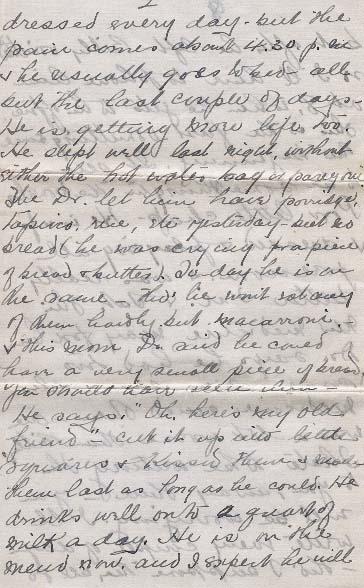 dressed every day - but the
pain comes about 4.30 p.m
& he usually goes to bed - all
but the last couple of days.
He is getting more life, too.
He slept well last night, without
either the hot water bag or paregoric
The Dr. let him have porridge,
tapioca, rice, etc yesterday - but no
bread (he was crying for a piece
of bread & butter). To-day he is on
the same - tho' he won't eat any
of them hardly but macarroni.
& this morn, Dr. said he could
have a very small piece of bread.
You should have seen him -
He says. "Oh, here's my old
friend" - cut it up into little
squares & kissed them & made
them last as long as he could. He
drinks well onto a quart of
milk a day. He is on the
mend now, and I expect he will